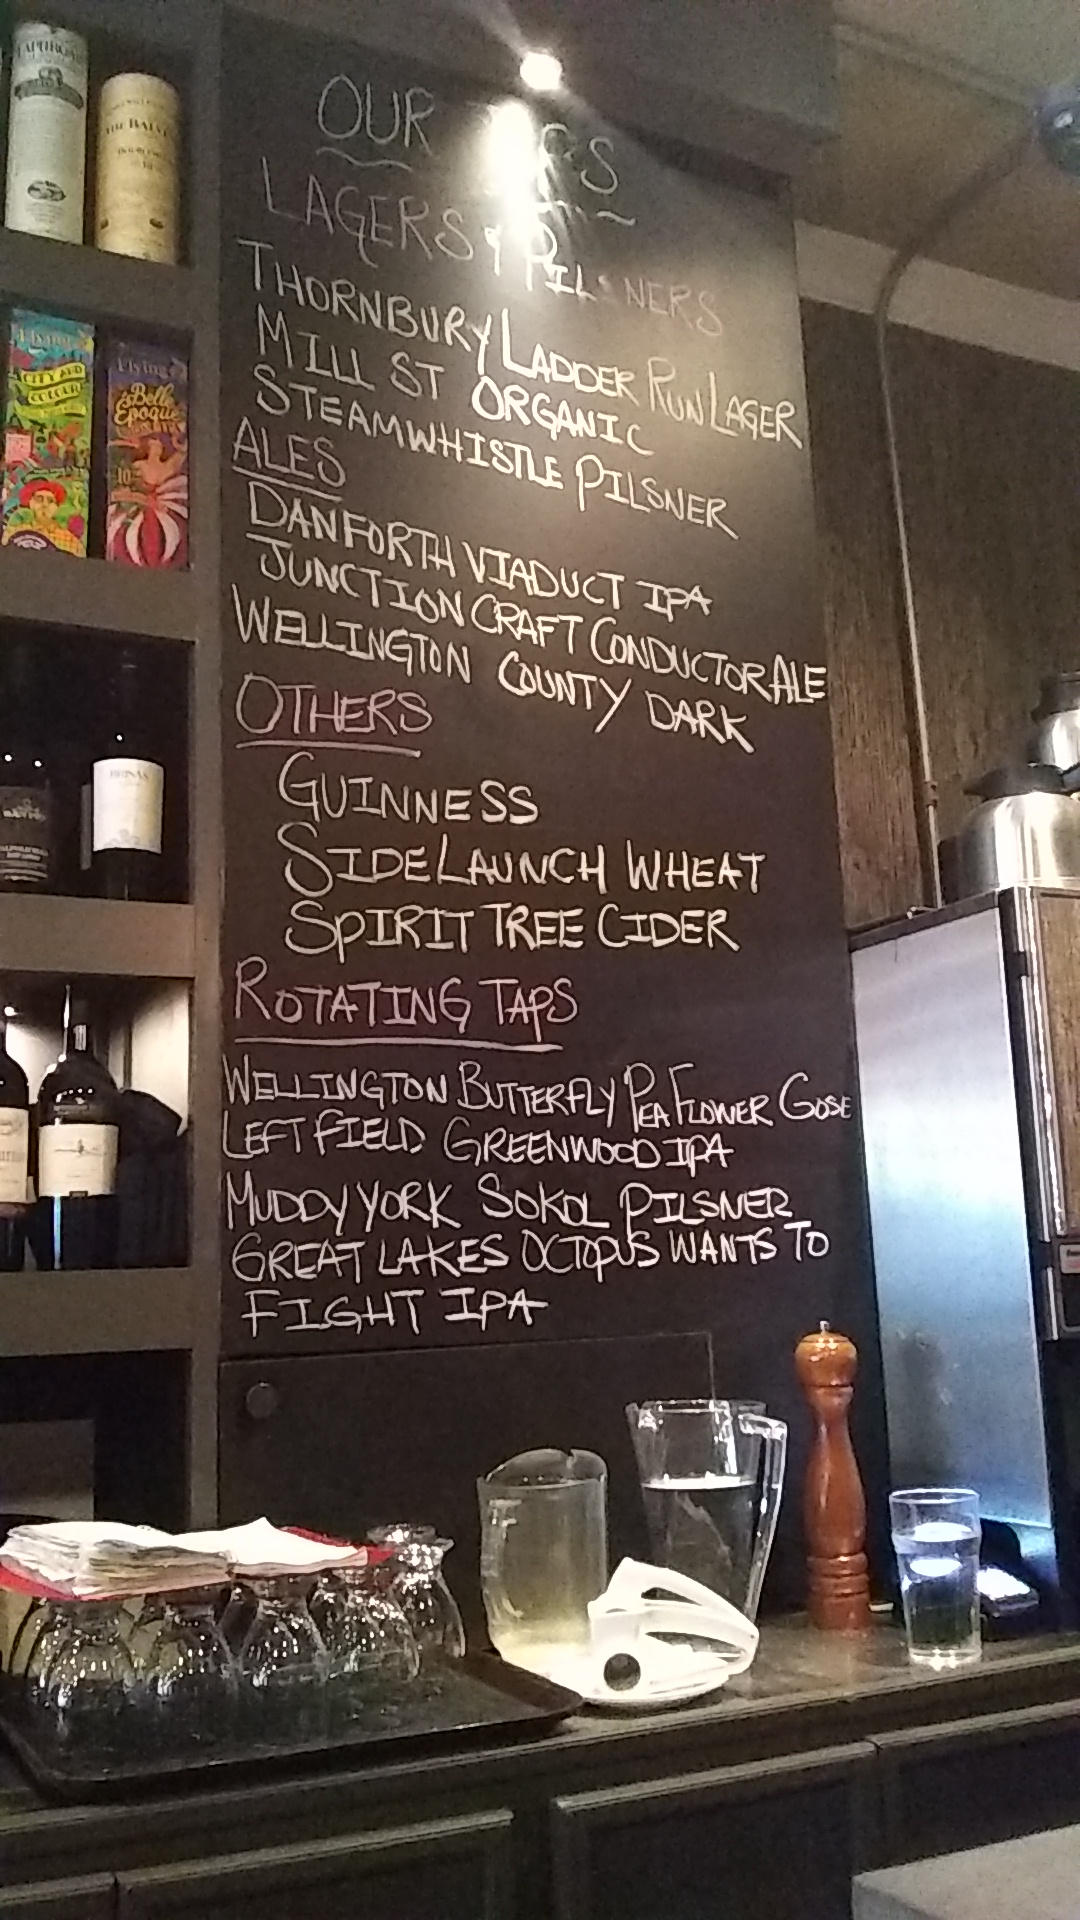 OUR
LAGERS & PILSNERS
THORNBURY LADDER RUN LAGER
MILL ST ORGANIC
STEAMWHISTLE PILSNER
ALES
DANFORTH VIADUCT IPA
JUNCTION CRAFT CONDUCTOR ALE
WELLINGTON COUNTY DARK
OTHERS
GUINNESS
SIDE LAUNCH WHEAT
SPIRIT TREE CIDER
ROTATING TAPS
WELLINGTON BUTTERFLY PEA FLOWER GOSE
LEFT FIELD GREENWOOD IPA
MUDDY YORK SOKOL PILSNER
GREAT LAKES OCTOPUS WANTS TO
FIGHT IPA
LAPHROAIG
Flying
CITY AND
COLOUR
Flying
Belle
Epoque
10